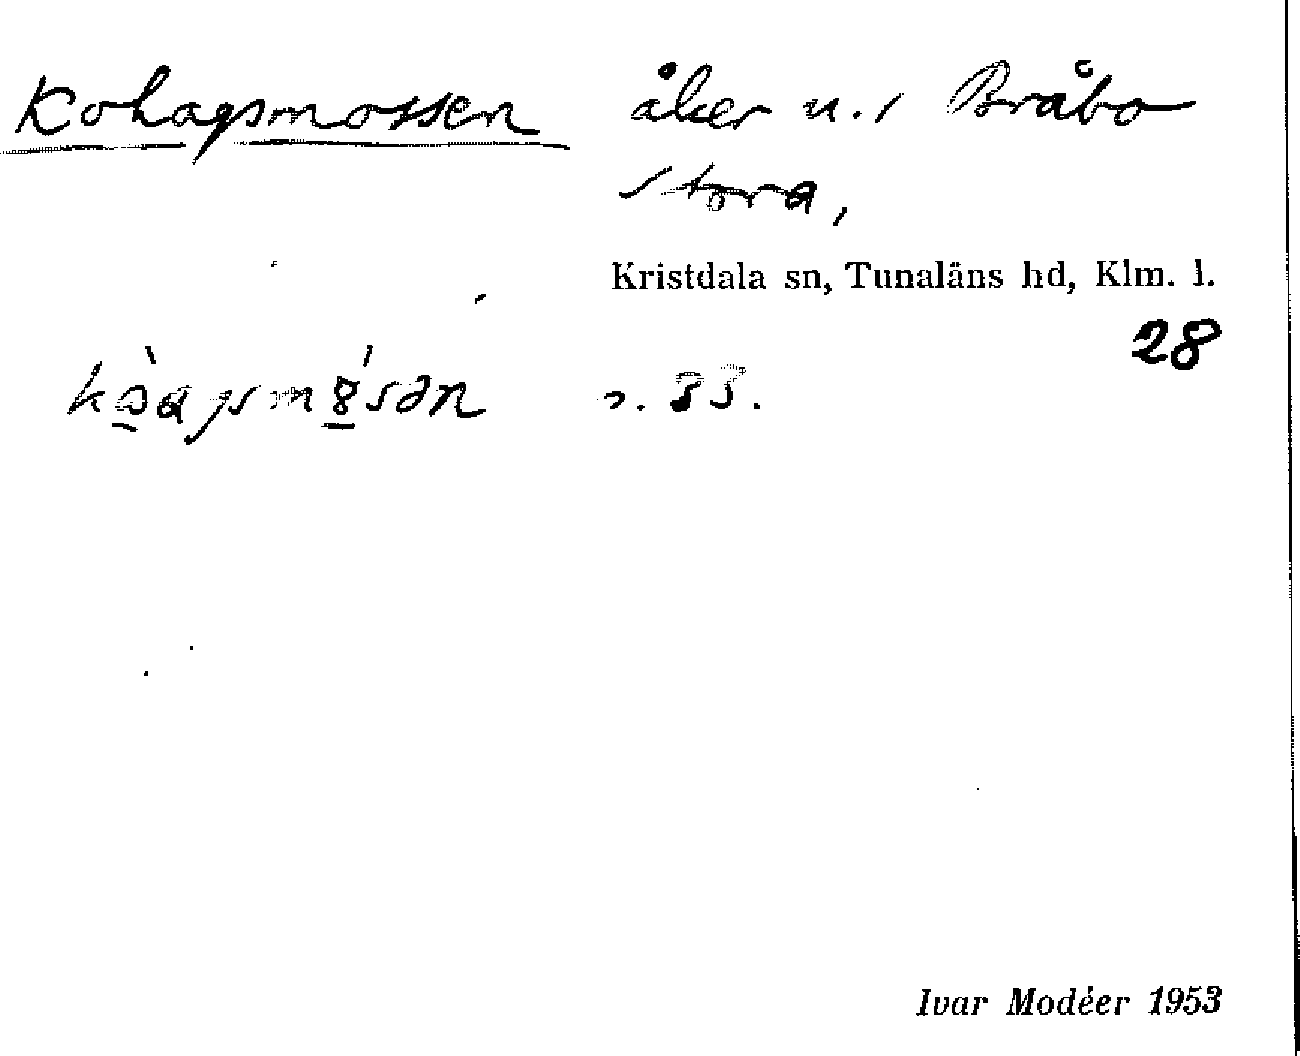 Kohagsmossen åker u. / Bråbo
Stora,
Kristdala sn, Tunaläns hd, Klm. l.
28
33.
Ivar Modéer 1953